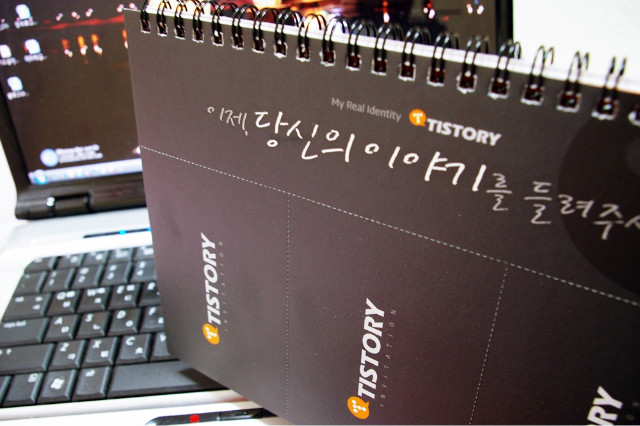 My Real Identity TISTORY
이제, 당신의 이야기를 들려주
TISTORY
INVITATION
TISTORY
INVITATION